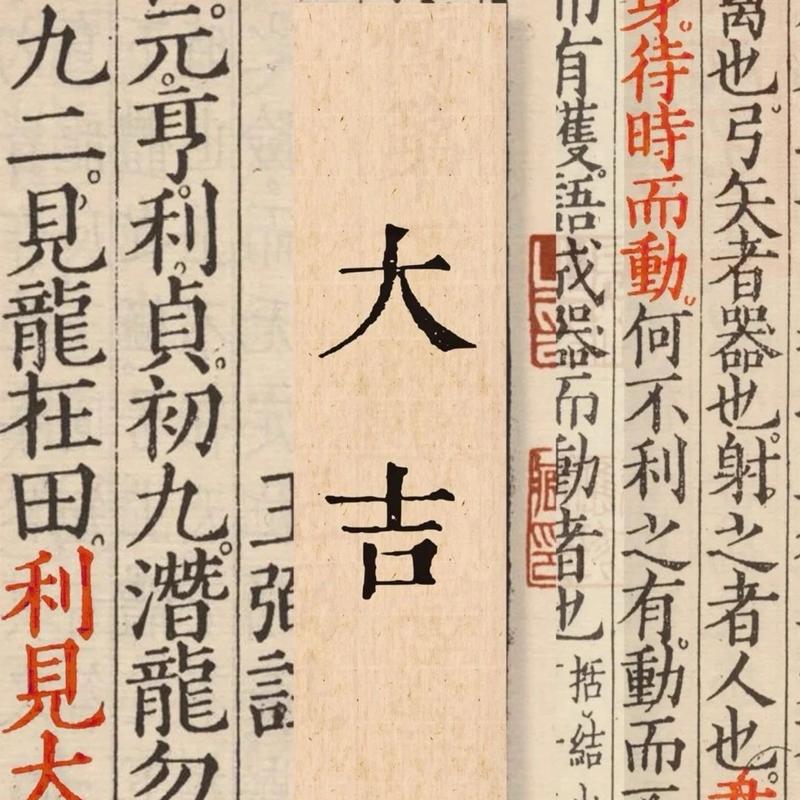 禽也。弓矢者器也。射之者人也。
身。待時而動。何不利之有。動而不
而有獲。語成器而動者也 括結
大吉
王弼註
元。亨。利。貞。初九。潛龍勿
九二。見龍在田。利見大